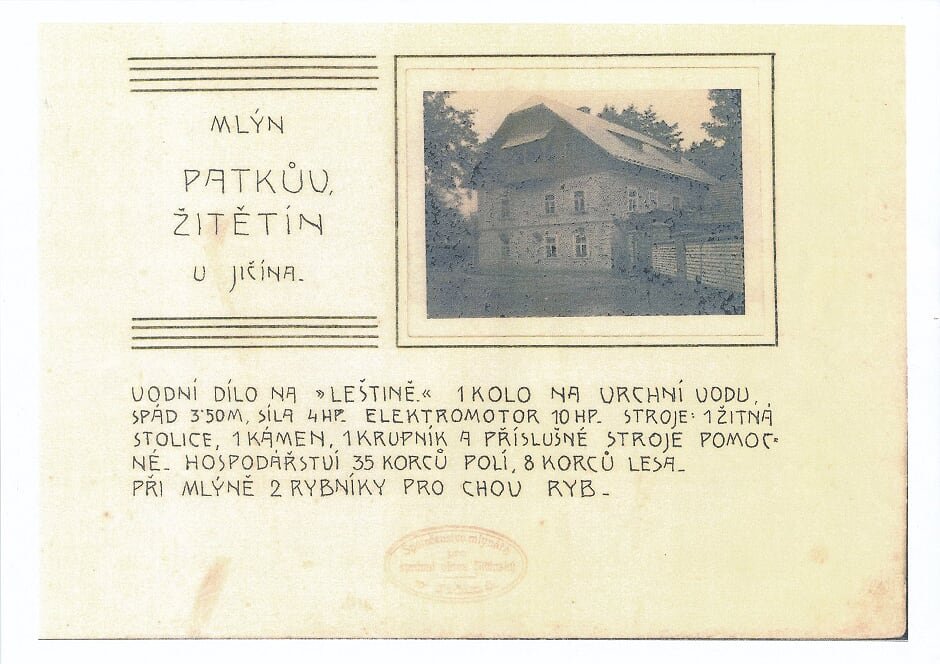 MLÝN
PATKŮV,
ŽITĚTÍN
U JIČÍNA.
VODNÍ DÍLO NA »LEŠTINĚ.« 1 KOLO NA VRCHNÍ VODU,
SPÁD 3˙50M, SÍLA 4HP. ELEKTROMOTOR 10 HP. STROJE: 1 ŽITNÁ
STOLICE, 1 KÁMEN, 1 KRUPNÍK A PŘÍSLUŠNÉ STROJE POMOC-
NÉ. HOSPODÁŘSTVÍ 35 KORCŮ POLÍ, 8 KORCŮ LESA.
PŘI MLÝNĚ 2 RYBNÍKY PRO CHOV RYB.
Společenstvo mlynářů
pro
správní okres Jičínský